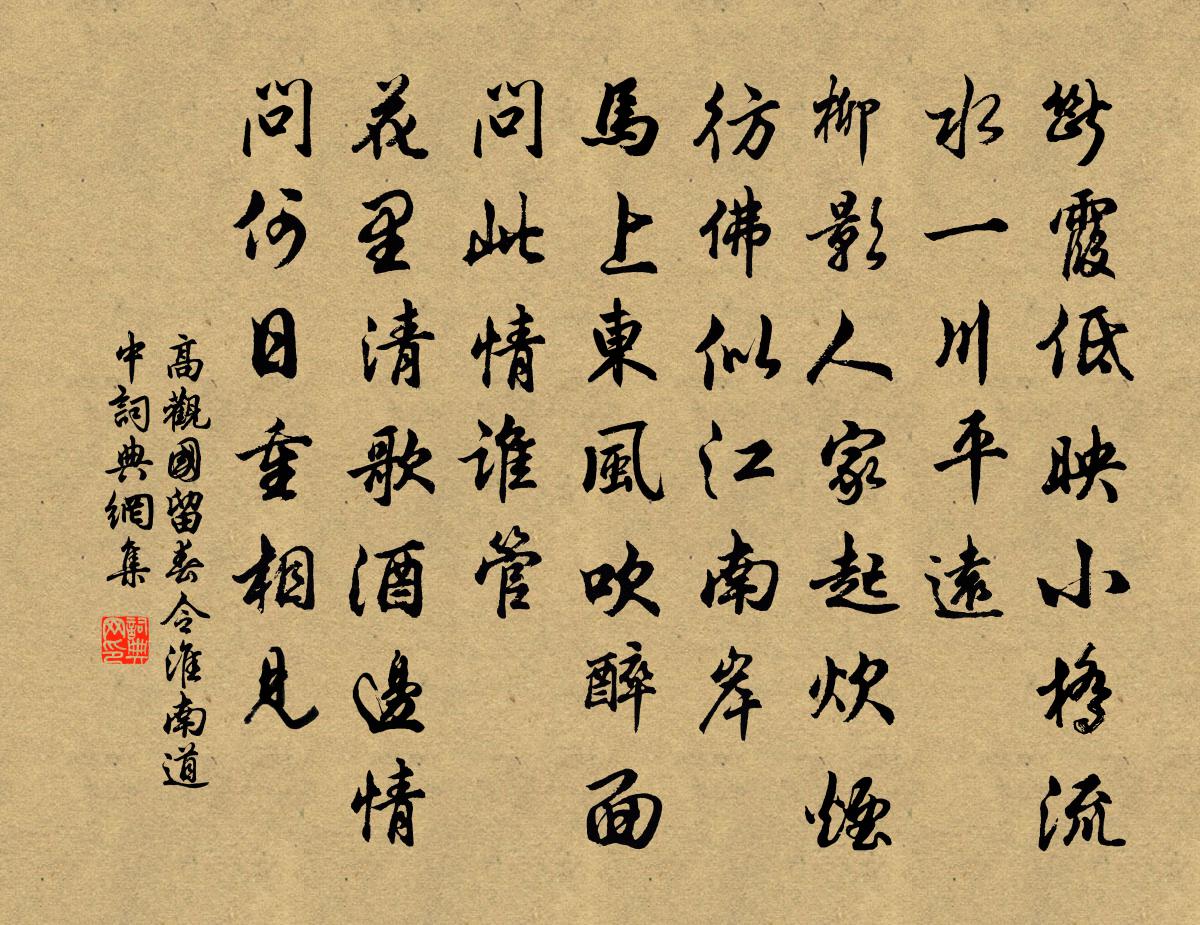 斷霞低映小橋流
水一川平遠
柳影人家起炊煙
彷佛似江南岸
馬上東風吹醉面
問此情誰管
花里清歌酒邊情
問何日重相見
高觀國留春令淮南道
中詞典網集
詞典
网印